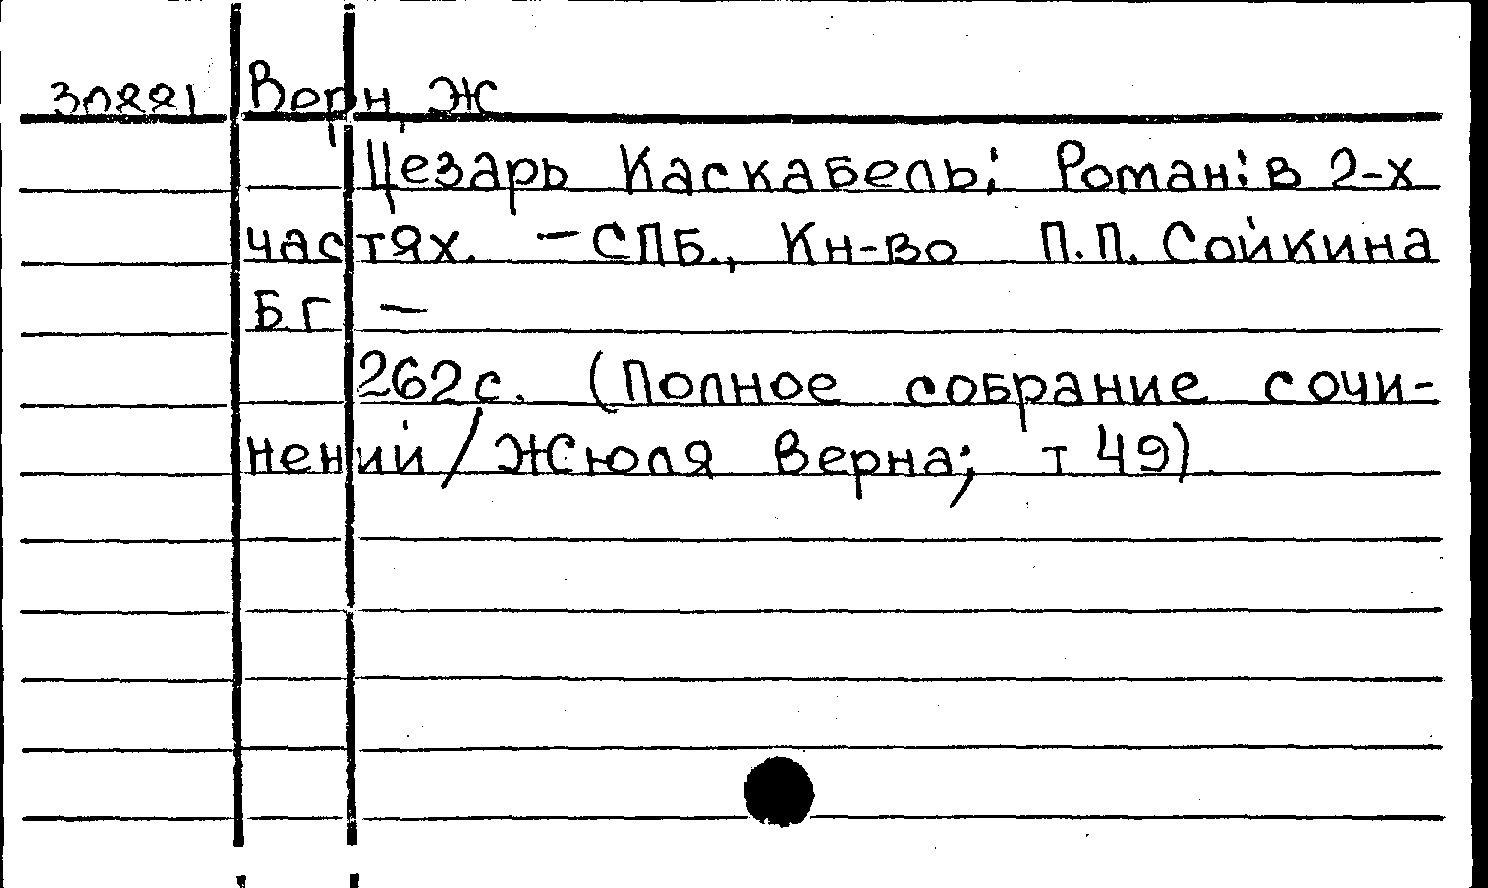 30221 Верн, Ж
Цезарь Каскабель: Роман: в 2-х
частях. - СПБ., Кн-во П.П. Сойкина
Б.г. -
262с. (Полное собрание сочи-
нений / Жюля Верна; т 49)